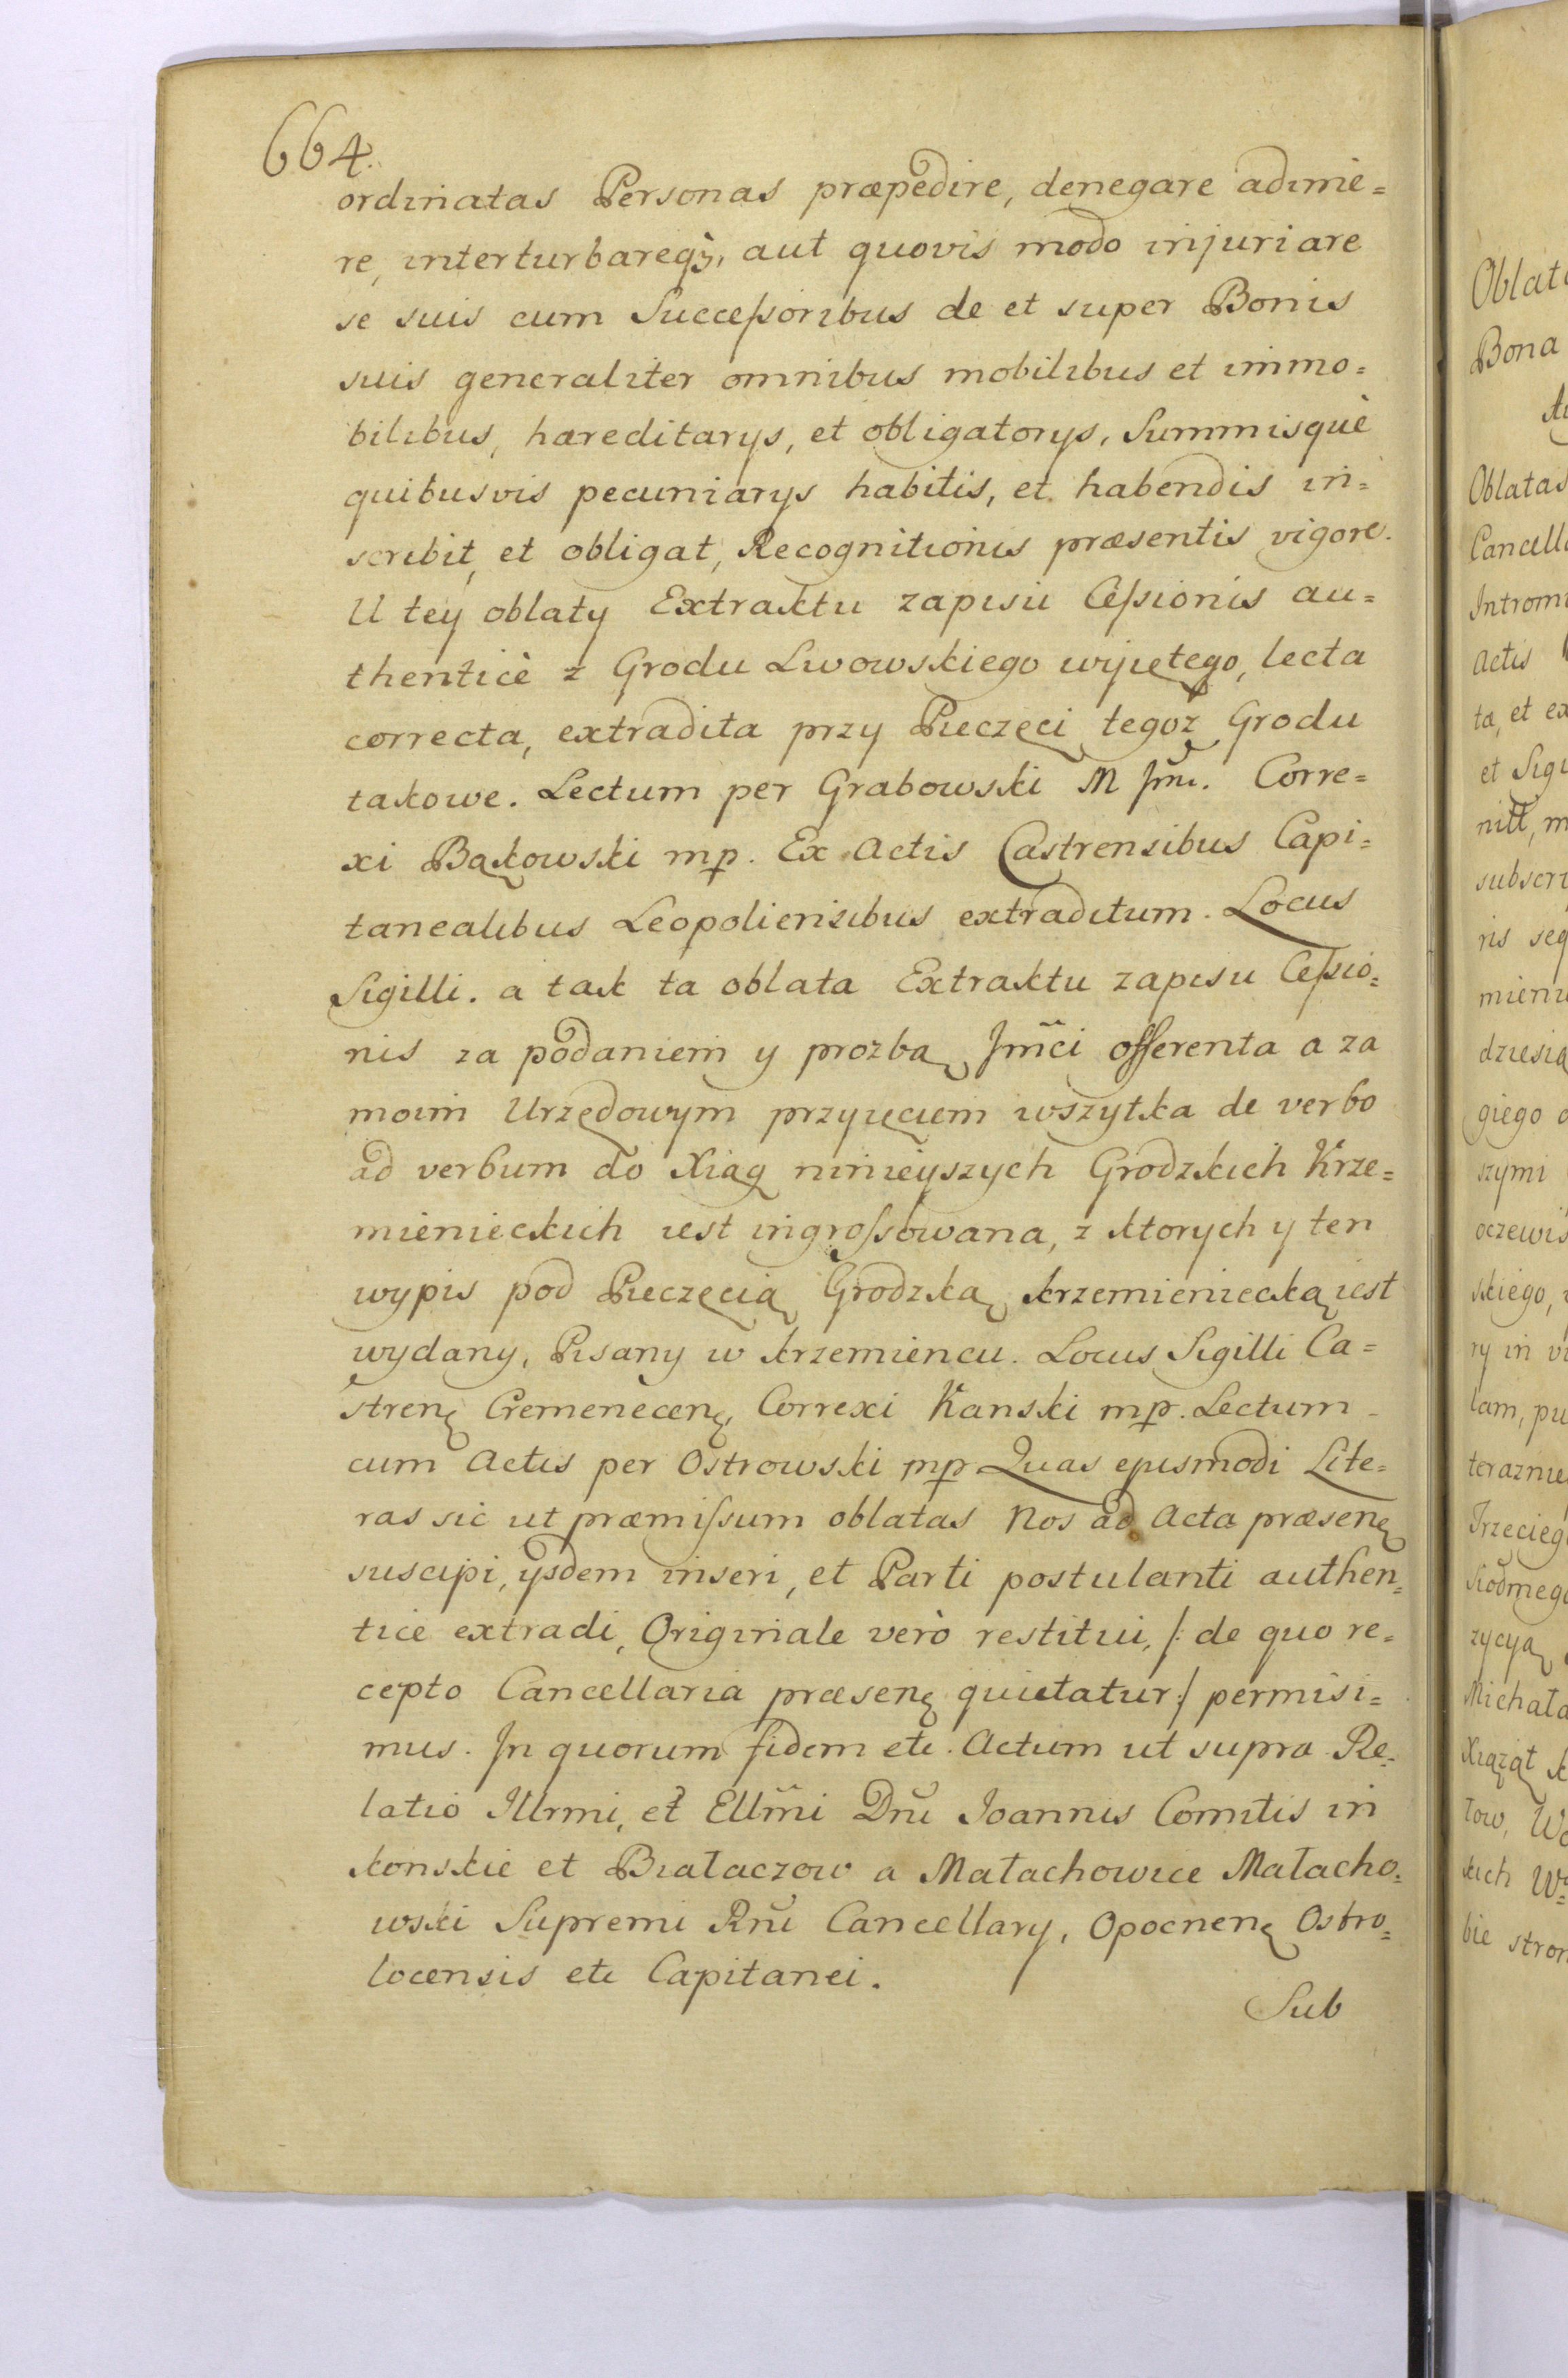 664.
ordinatas Personas præpedire, denegare adime=
re, interturbareqȝ, aut quovis modo injuriare
se suis cum Succeſsoribus de et super Bonis
suis generaliter omnibus mobilibus et immo=
bilibus, hæreditarys, et obligatorys, Summisquè
quibusvis pecuniarys habitis, et habendis in=
scribit, et obligat, Recognitionis præsentis vigore.
U tey oblaty Extraktu zapisu Ceſsionis au=
thenticè z Grodu Lwowskiego wyiętego, lecta
correcta, extradita przy Pieczęci tegoż Grodu
takowe. Lectum per Grabowski M Jmc. Corre=
xi Bąkowski mp. Ex Actis Castrensibus Capi=
tanealibus Leopoliensibus extraditum. Locus
Sigilli. a tak ta oblata Extraktu zapisu Ceſsio=
nis za podaniem y prozbą Jmci offerenta a za
moim Urzędowym przyięciem wszytka de verbo
ad verbum do Xiąg ninieyszych Grodzkich Krze=
mienieckich iest ingroſsowana, z ktorych y ten
wypis pod Pieczęcią Grodzką krzemieniecką iest
wydany, Pisany w krzemiencu. Locus Sigilli Ca=
strenę Cremenecenę, Correxi Kanski mp. Lectum
cum Actis per Ostrowski mp Quas ejusmodi Lite=
ras sic ut præmiſsum oblatas Nos ad Acta præsenę
suscipi, ysdem inseri, et Parti postulanti authen=
tice extradi, Originale verò restitui, /: de quo re=
cepto Cancellaria præsenę quietatur :/ permisi=
mus. In quorum fidem etc. Actum ut supra Re=
latio Illrmi, et Ellmi Dni Joannis Comitis in
konskie et Białaczow a Małachowice Małacho=
wski Supremi Rni Cancellary, Opocnenę Ostro=
locensis etc Capitanei.
Sub
Oblat
Bona
Oblatas
Cancell
Intromi
Actis
ta, et ex
et Sigi
nitt, m
subscri
ris seq
mieni
dziesią
giego
szymi
oczewis
skiego,
ry in vi
lam, pu
teraznie
Trzecieg
Siodmego
zycyą
Michała
Xiążąt
tow,
skich
bie stron